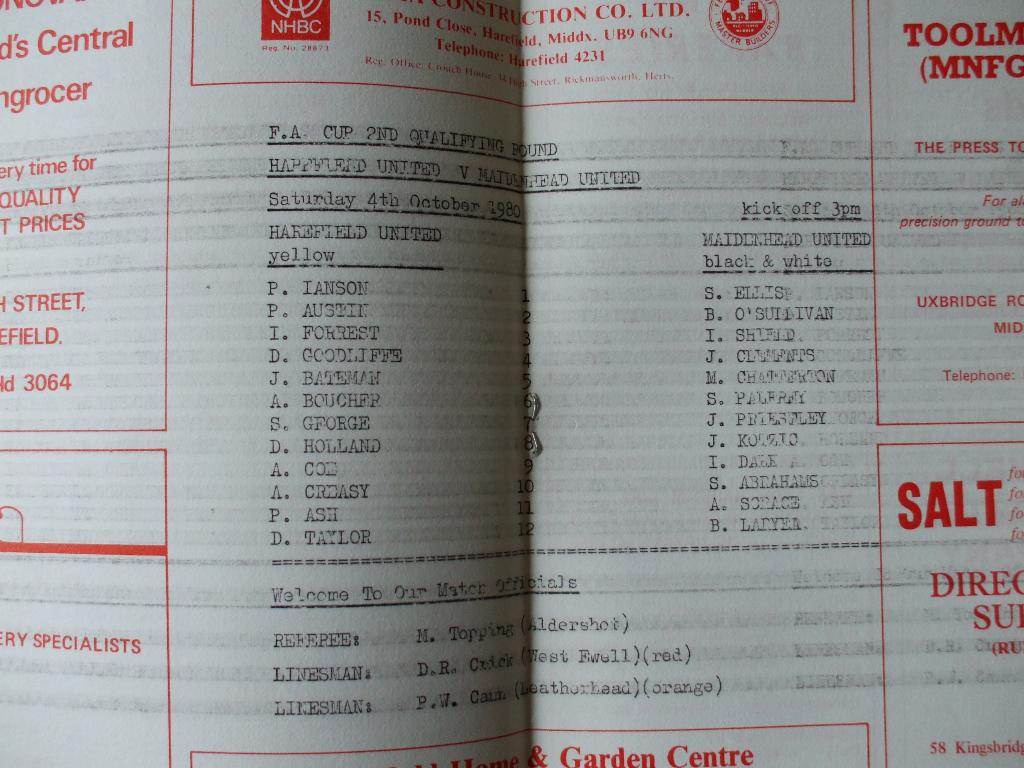 d's Central
ngrocer
ery time for
QUALITY
T PRICES
H STREET,
EFIELD.
ld 3064
ERY SPECIALISTS
NHBC
Reg. No. 28873
CONSTRUCTION CO. LTD.
15, Pond Close, Harefield, Middx. UB9 6NG
Telephone: Harefield 4231
Reg. Office: Crouch House, High Street, Rickmansworth, Herts.
MASTER BUILDERS
F.A. CUP 2ND QUALIFYING ROUND
HAREFIELD UNITED V MAIDENHEAD UNITED
Saturday 4th October 1980 kick off 3pm
HAREFIELD UNITED MAIDENHEAD UNITED
yellow black & white
P. IANSON 1 S. ELLIS
P. AUSTIN 2 B. O'SULLIVAN
I. FORREST 3 I. SHIELD
D. GOODLIFFE 4 J. CLEMENTS
J. BATEMAN 5 M. CHATTERTON
A. BOUCHER 6 S. PALFREY
S. GEORGE 7 J. PRIESTLEY
D. HOLLAND 8 J.
A. COE 9 I. DALE
A. CREASY 10 S. ABRAHAMS
P. ASH 11 A.
D. TAYLOR 12 B.
Welcome To Our Match Officials
REFEREE: M. Topping (Aldershot)
LINESMAN: D.R. Crick (West Ewell)(red)
LINESMAN: P.W. Cann (Leatherhead)(orange)
Home & Garden Centre
TOOLM
(MNFG
THE PRESS TO
For al
precision ground t
UXBRIDGE RO
MID
Telephone:
SALT
fo
fo
fo
fo
DIREC
SU
(RU
58 Kingsbridg